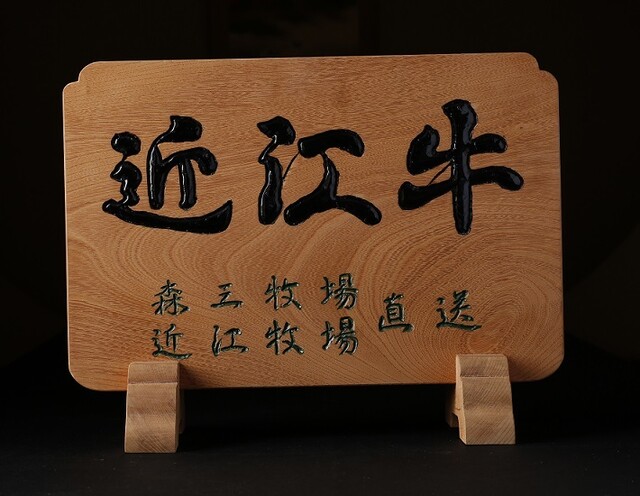 近江牛
森三牧場
近江牧場
直送